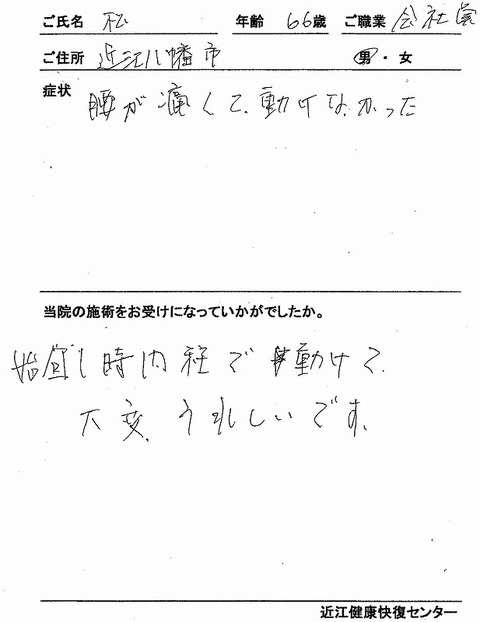 ご氏名 松 年齢 66歳 ご職業 会社員
ご住所 近江八幡市 男・女
症状
腰が痛くて、動けなかった
当院の施術をお受けになっていかがでしたか。
時内 で 動けて
大変、うれしいです。
近江健康快復センター